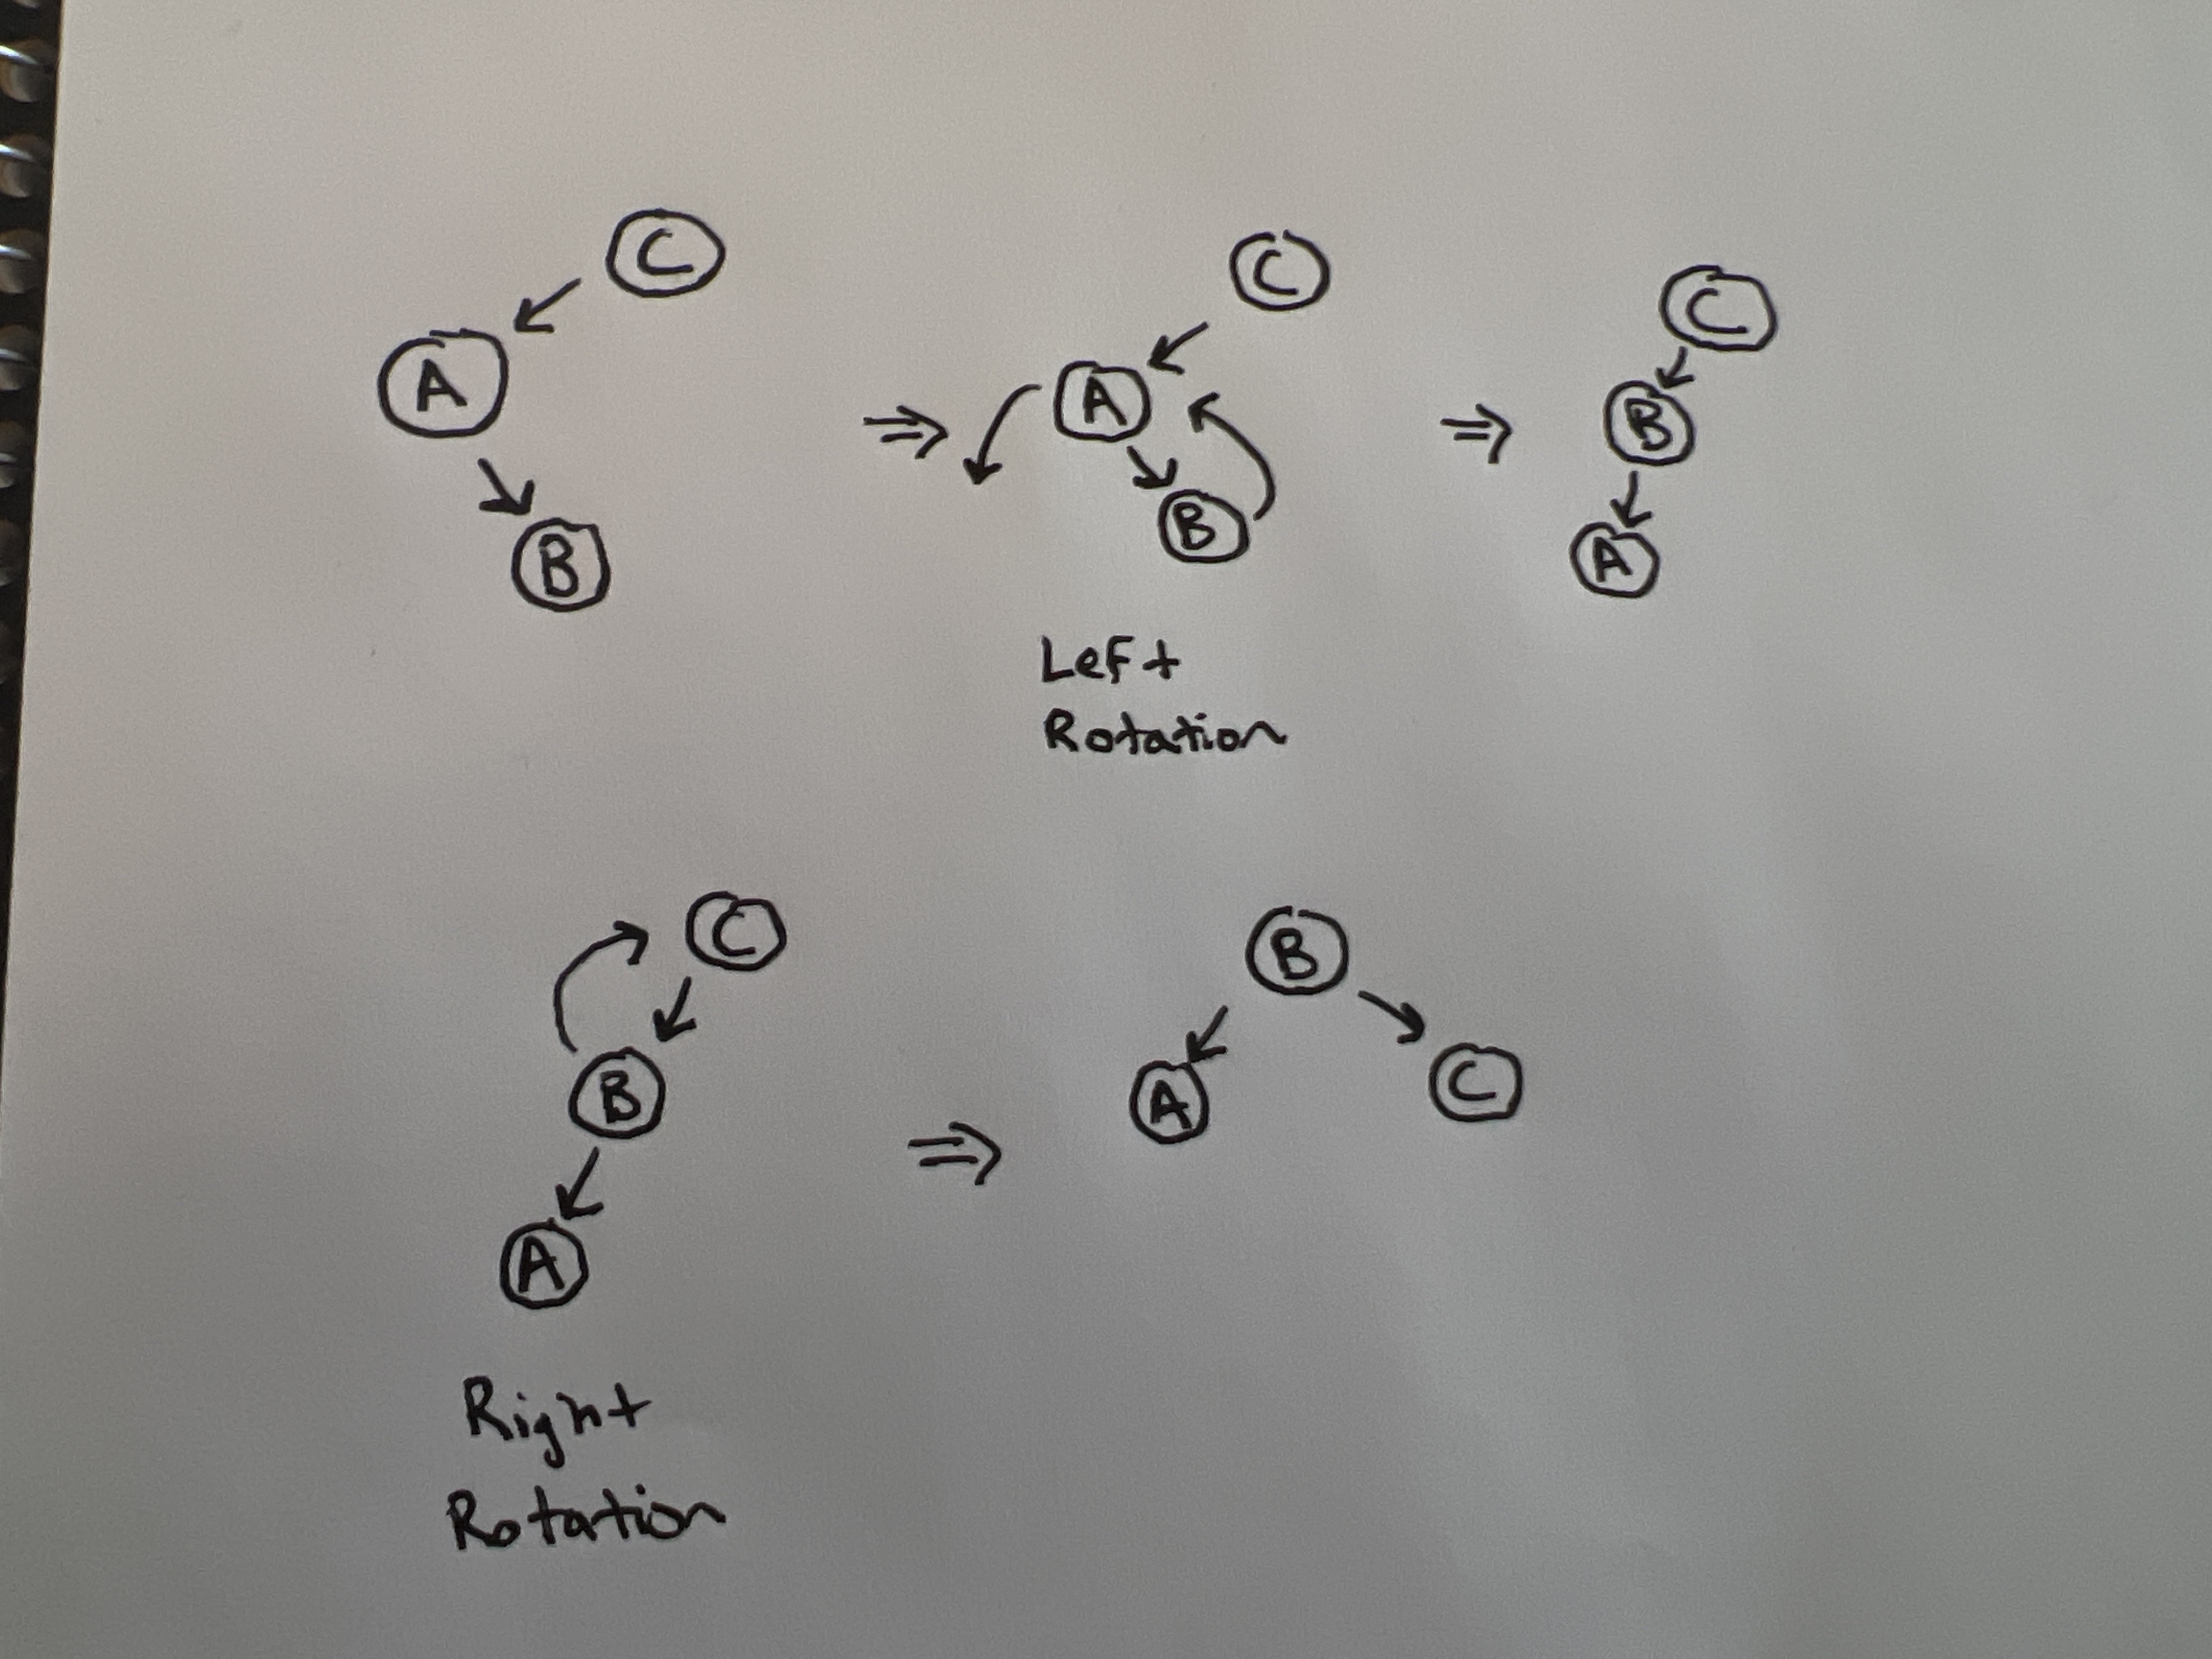 C
A
B
⇒
C
A
B
⇒
C
B
A
Left
Rotation
C
B
A
⇒
B
A
C
Right
Rotation